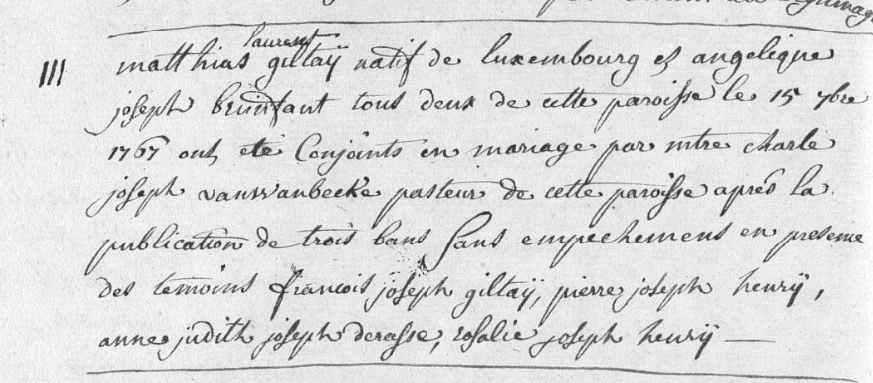 III
laurent
matthias giltaÿ natif de luxembourg et angelique
joseph brunfaut tous deux de cette paroisse le 15 7bre
1767 ont eté Conjoints en mariage par mtre charle
joseph vanwanbecke pasteur de cette paroisse aprés la
publication de trois bans Sans empechemens en presence
des temoins francois joseph giltaÿ, pierre joseph henrÿ,
anne judith joseph derasse, rosalie joseph henrÿ —